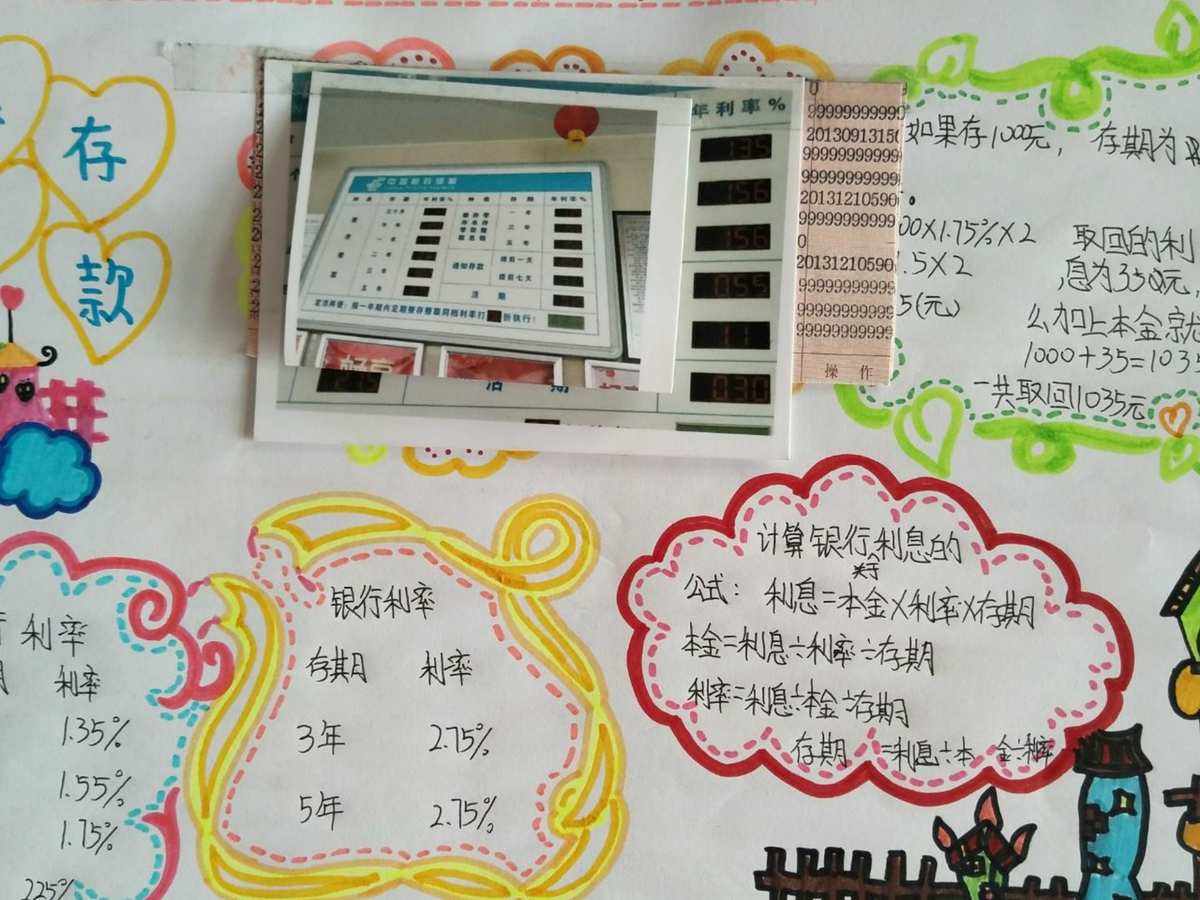 存
款
年利率%
135
156
156
0.55
11
030
活 期
99999999999
20130913150
99999999999
99999999999
20131210590
99999999999
0
20131210590
99999999999
99999999999
操 作
一年
三年
五年
通知存款
提前一天
提前七天
活 期
如果存1000元，存期为
00×1.75%×2
.5×2
5(元)
取回的利
息为350元，
么加上本金就
1000+35=1035
一共取回1035元
利率
利率
1.35%
1.55%
1.75%
2.25%
银行利率
存期 利率
3年 2.75%
5年 2.75%
计算银行利息的
公式：利息=本金×利率×存期
本金=利息÷利率÷存期
利率=利息÷本金÷存期
存期=利息÷本金÷利率